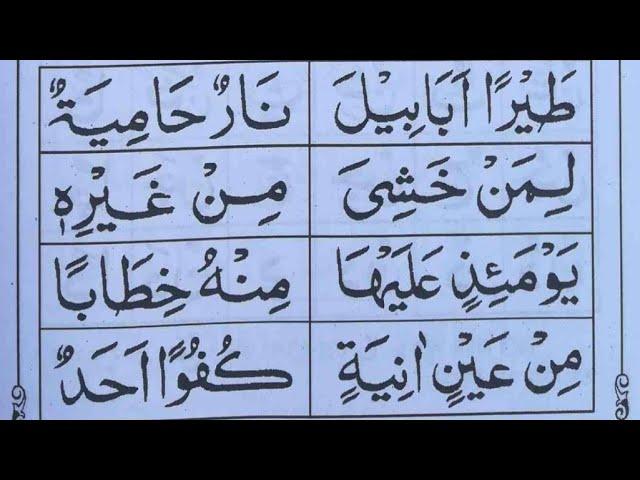 طَيْرًا اَبَابِيْلَ نَارٌ حَامِيَةٌ
لِمَنْ خَشِىَ مِنْ غَيْرِهٖ
يَوْمَئِذٍ عَلَيْهَا مِنْهُ خِطَابًا
مِنْ عَيْنٍ اٰنِيَةٍ كُفُوًا اَحَدٌ